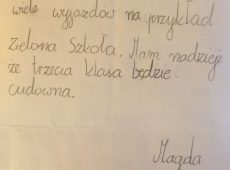 wiele wyjazdów na przykład
Zielona Szkoła. Mam nadzieję
że trzecia klasa będzie
cudowna.
Magda